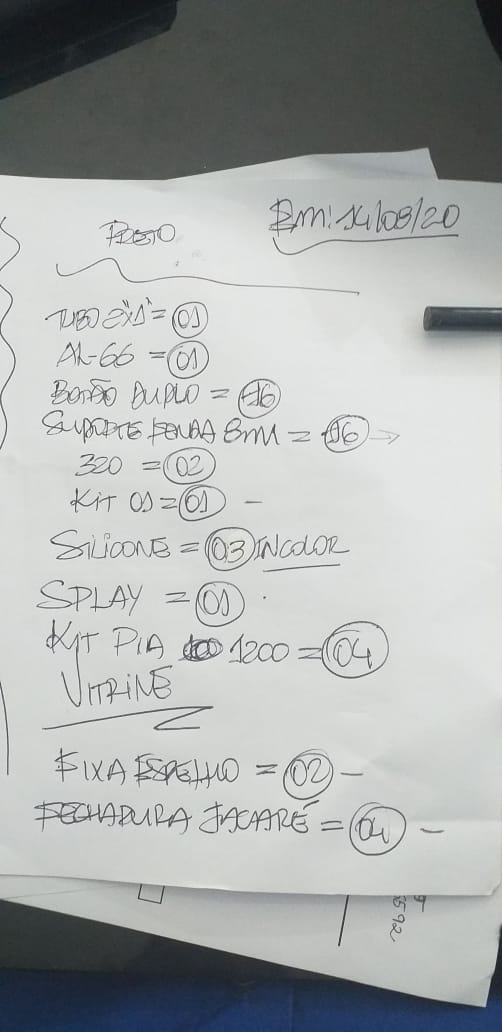 PRETO
Em: 14/08/20
TUBO 2"x1" = 01
AL-66 = 01
BOTÃO DUPLO = 16
SUPORTE FENDA 8mm = 16
320 = 02
KIT 01 = 01 -
SILICONE = 03 INCOLOR
SPLAY = 01
KIT PIA 1200 = 04
VITRINE
FIXA ESPELHO = 02 -
FECHADURA JACARÉ = 04 -
8592